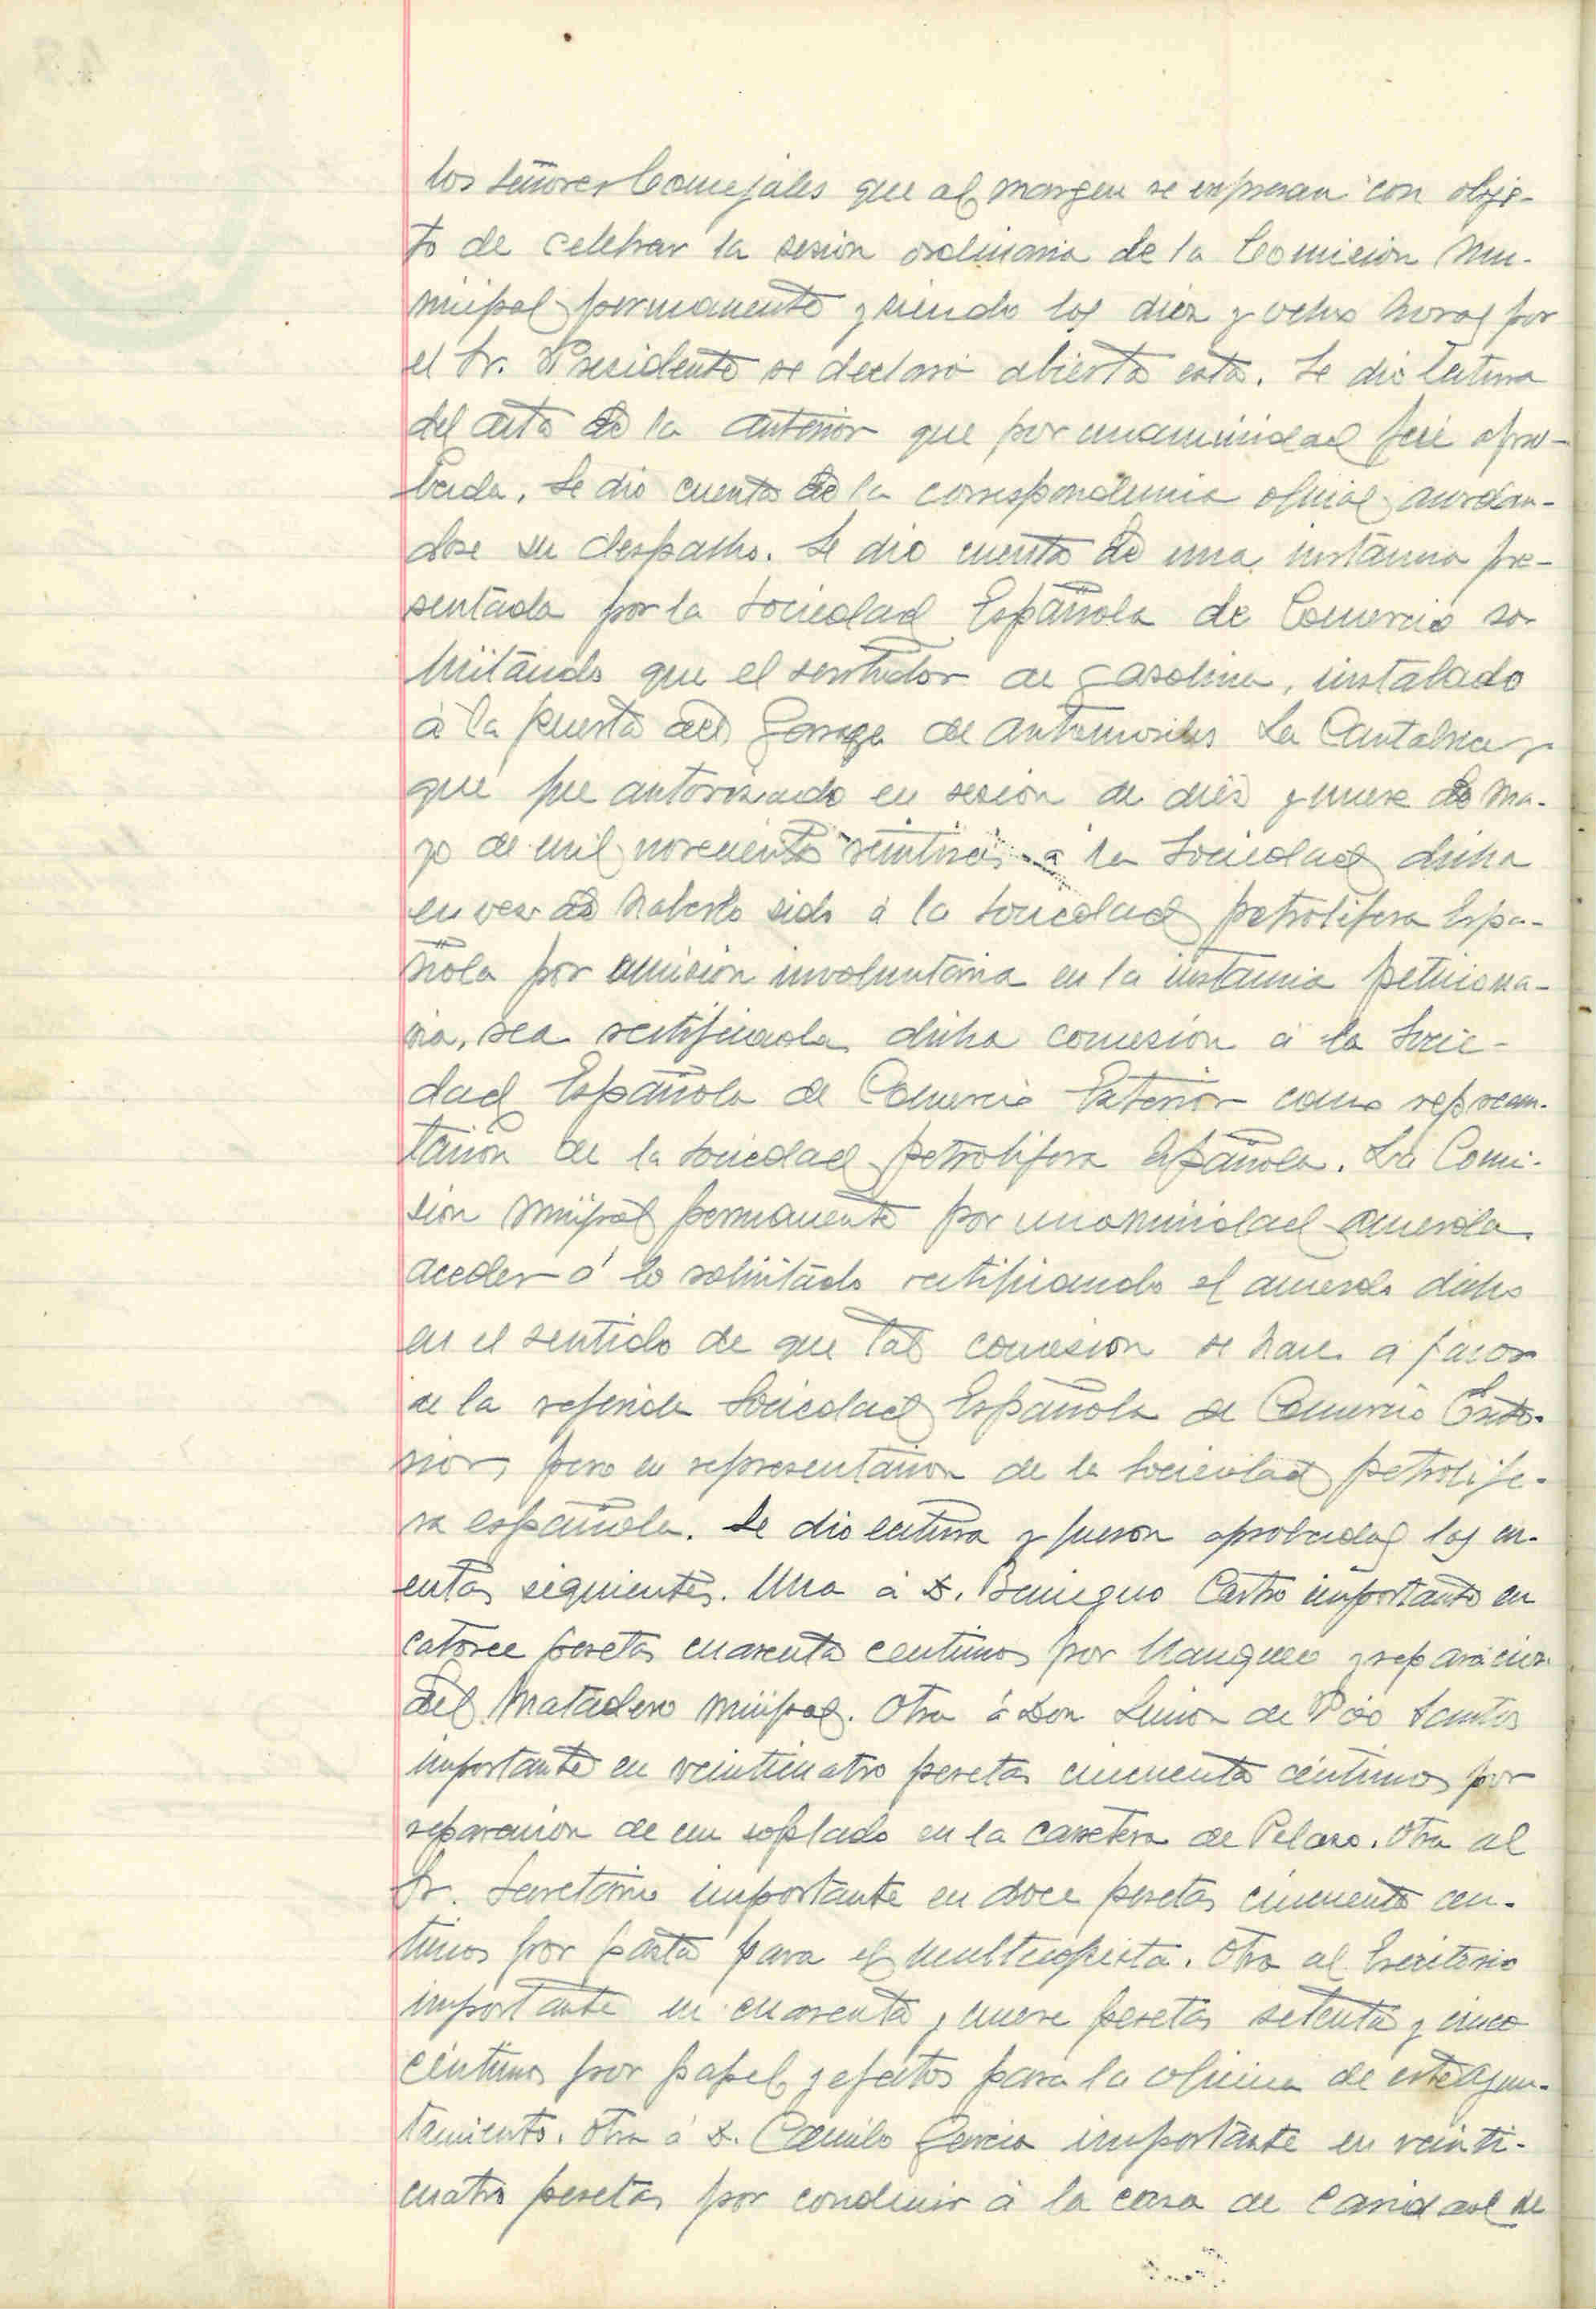 los señores Concejales que al margen se expresan con obje-
to de celebrar la sesion ordinaria de la Comision Mu-
nicipal permanente y siendo las diez y ocho horas por
el Sr. Presidente se declaró abierta esta. Se dio lectura
del acta de la anterior que por unanimidad fué apro-
bada. Se dio cuenta de la correspondencia oficial acordan-
dose su despacho. Se dio cuenta de una instancia pre-
sentada por la Sociedad Española de Comercio so-
licitando que el surtidor de gasolina, instalado
á la puerta del Garage de automoviles La Cantabrica y
que fue autorizado en sesion de diez y nueve de Ma-
yo de mil novecientos veintiseis á la Sociedad dicha
en vez de haberlo sido á la Sociedad petrolifera Espa-
ñola por omision involuntaria en la instancia peticiona-
ria, sea rectificada dicha concesion á la Socie-
dad Española de Comercio Exterior como represen-
tacion de la Sociedad petrolifera Española. La Comi-
sion Municipal permanente por unanimidad acuerda
acceder á lo solicitado rectificando el acuerdo dicho
en el sentido de que tal concesion se hace a favor
de la referida Sociedad Española de Comercio Exte-
rior, pero en representacion de la Sociedad petrolife-
ra española. Se dio lectura y fueron aprobadas las cu-
entas siguientes. Una á D. Benigno Castro importante en
catorce pesetas cuarenta centimos por blanqueo y reparacion
del Matadero Municipal. Otra á Don Simon de Pio Santos
importante en veinticuatro pesetas cincuenta céntimos por
reparacion de un soplado en la carretera de Pelazo. Otra al
Sr. Secretario importante en doce pesetas cincuenta cen-
timos por pasta para el multicopista. Otra al Escritorio
importante en cuarenta y nueve pesetas setenta y cinco
céntimos por papel y efectos para la oficina de este Ayun-
tamiento. Otra á D. Camilo Garcia importante en veinti-
cuatro pesetas por conducir á la casa de Caridad de